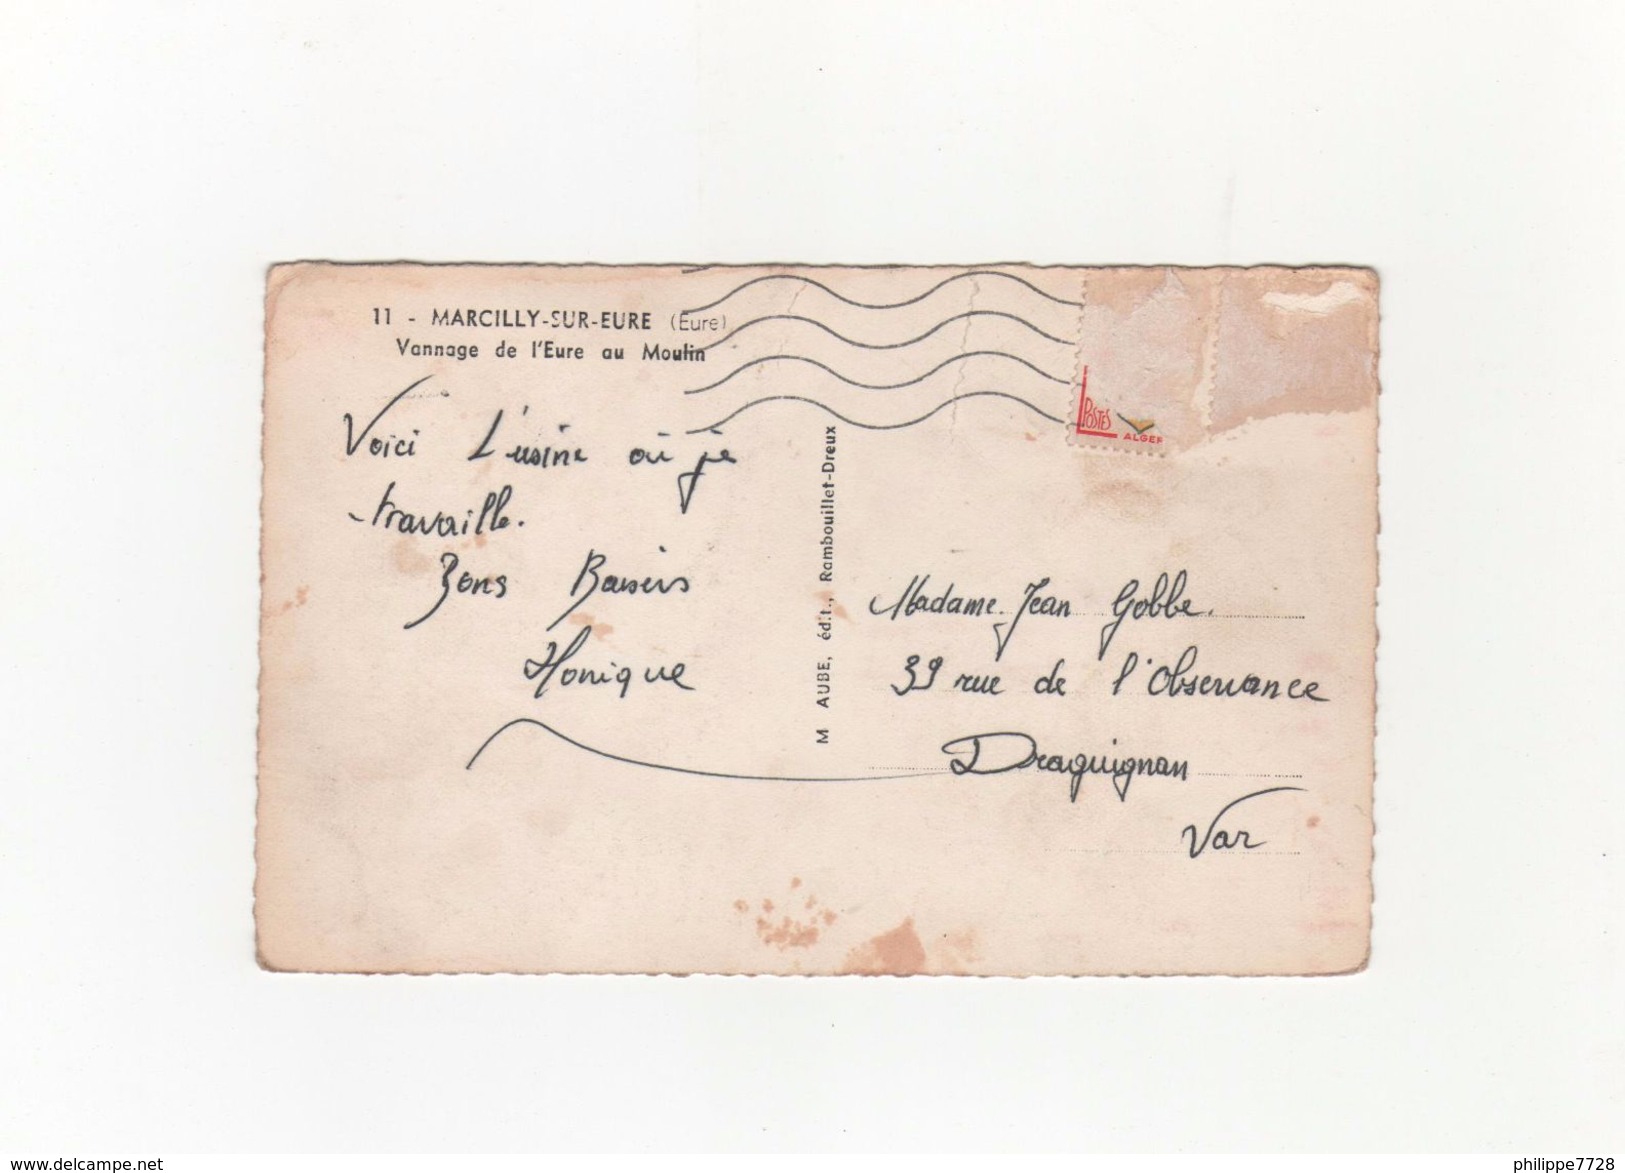 11 - MARCILLY-SUR-EURE (Eure)
Vannage de l'Eure au Moulin
Voici L'usine où je
travaille.
Bons Baisers
Monique
M AUBE, édit., Rambouillet-Dreux
POSTES
ALGER
Madame Jean Gobbe.
39 rue de l'Observance
Draguignan
Var
www.delcampe.net
philippe7728